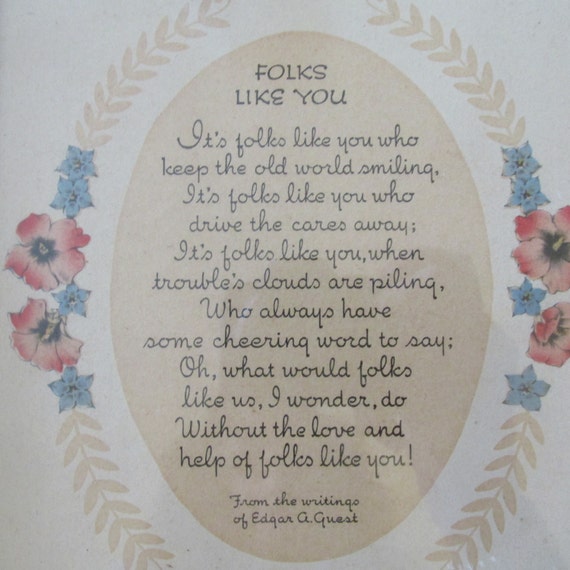 FOLKS
LIKE YOU
It's folks like you who
keep the old world smiling,
It's folks like you who
drive the cares away;
It's folks like you, when
trouble's clouds are piling,
Who always have
some cheering word to say;
Oh, what would folks
like us, I wonder, do
Without the love and
help of folks like you!
From the writings
of Edgar A. Guest